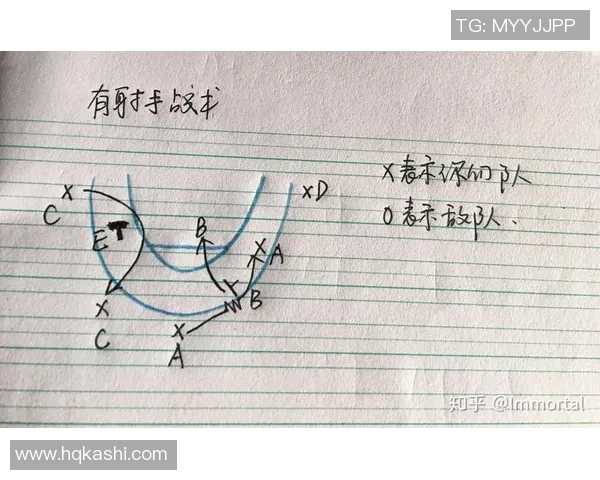 TG: MYYJJPP
有射手战术
X表示你的队
O表示敌队.
X
C
E
B
X
A
X
D
X
C
B
X
A
知乎 @Immortal
www.hqkashi.com